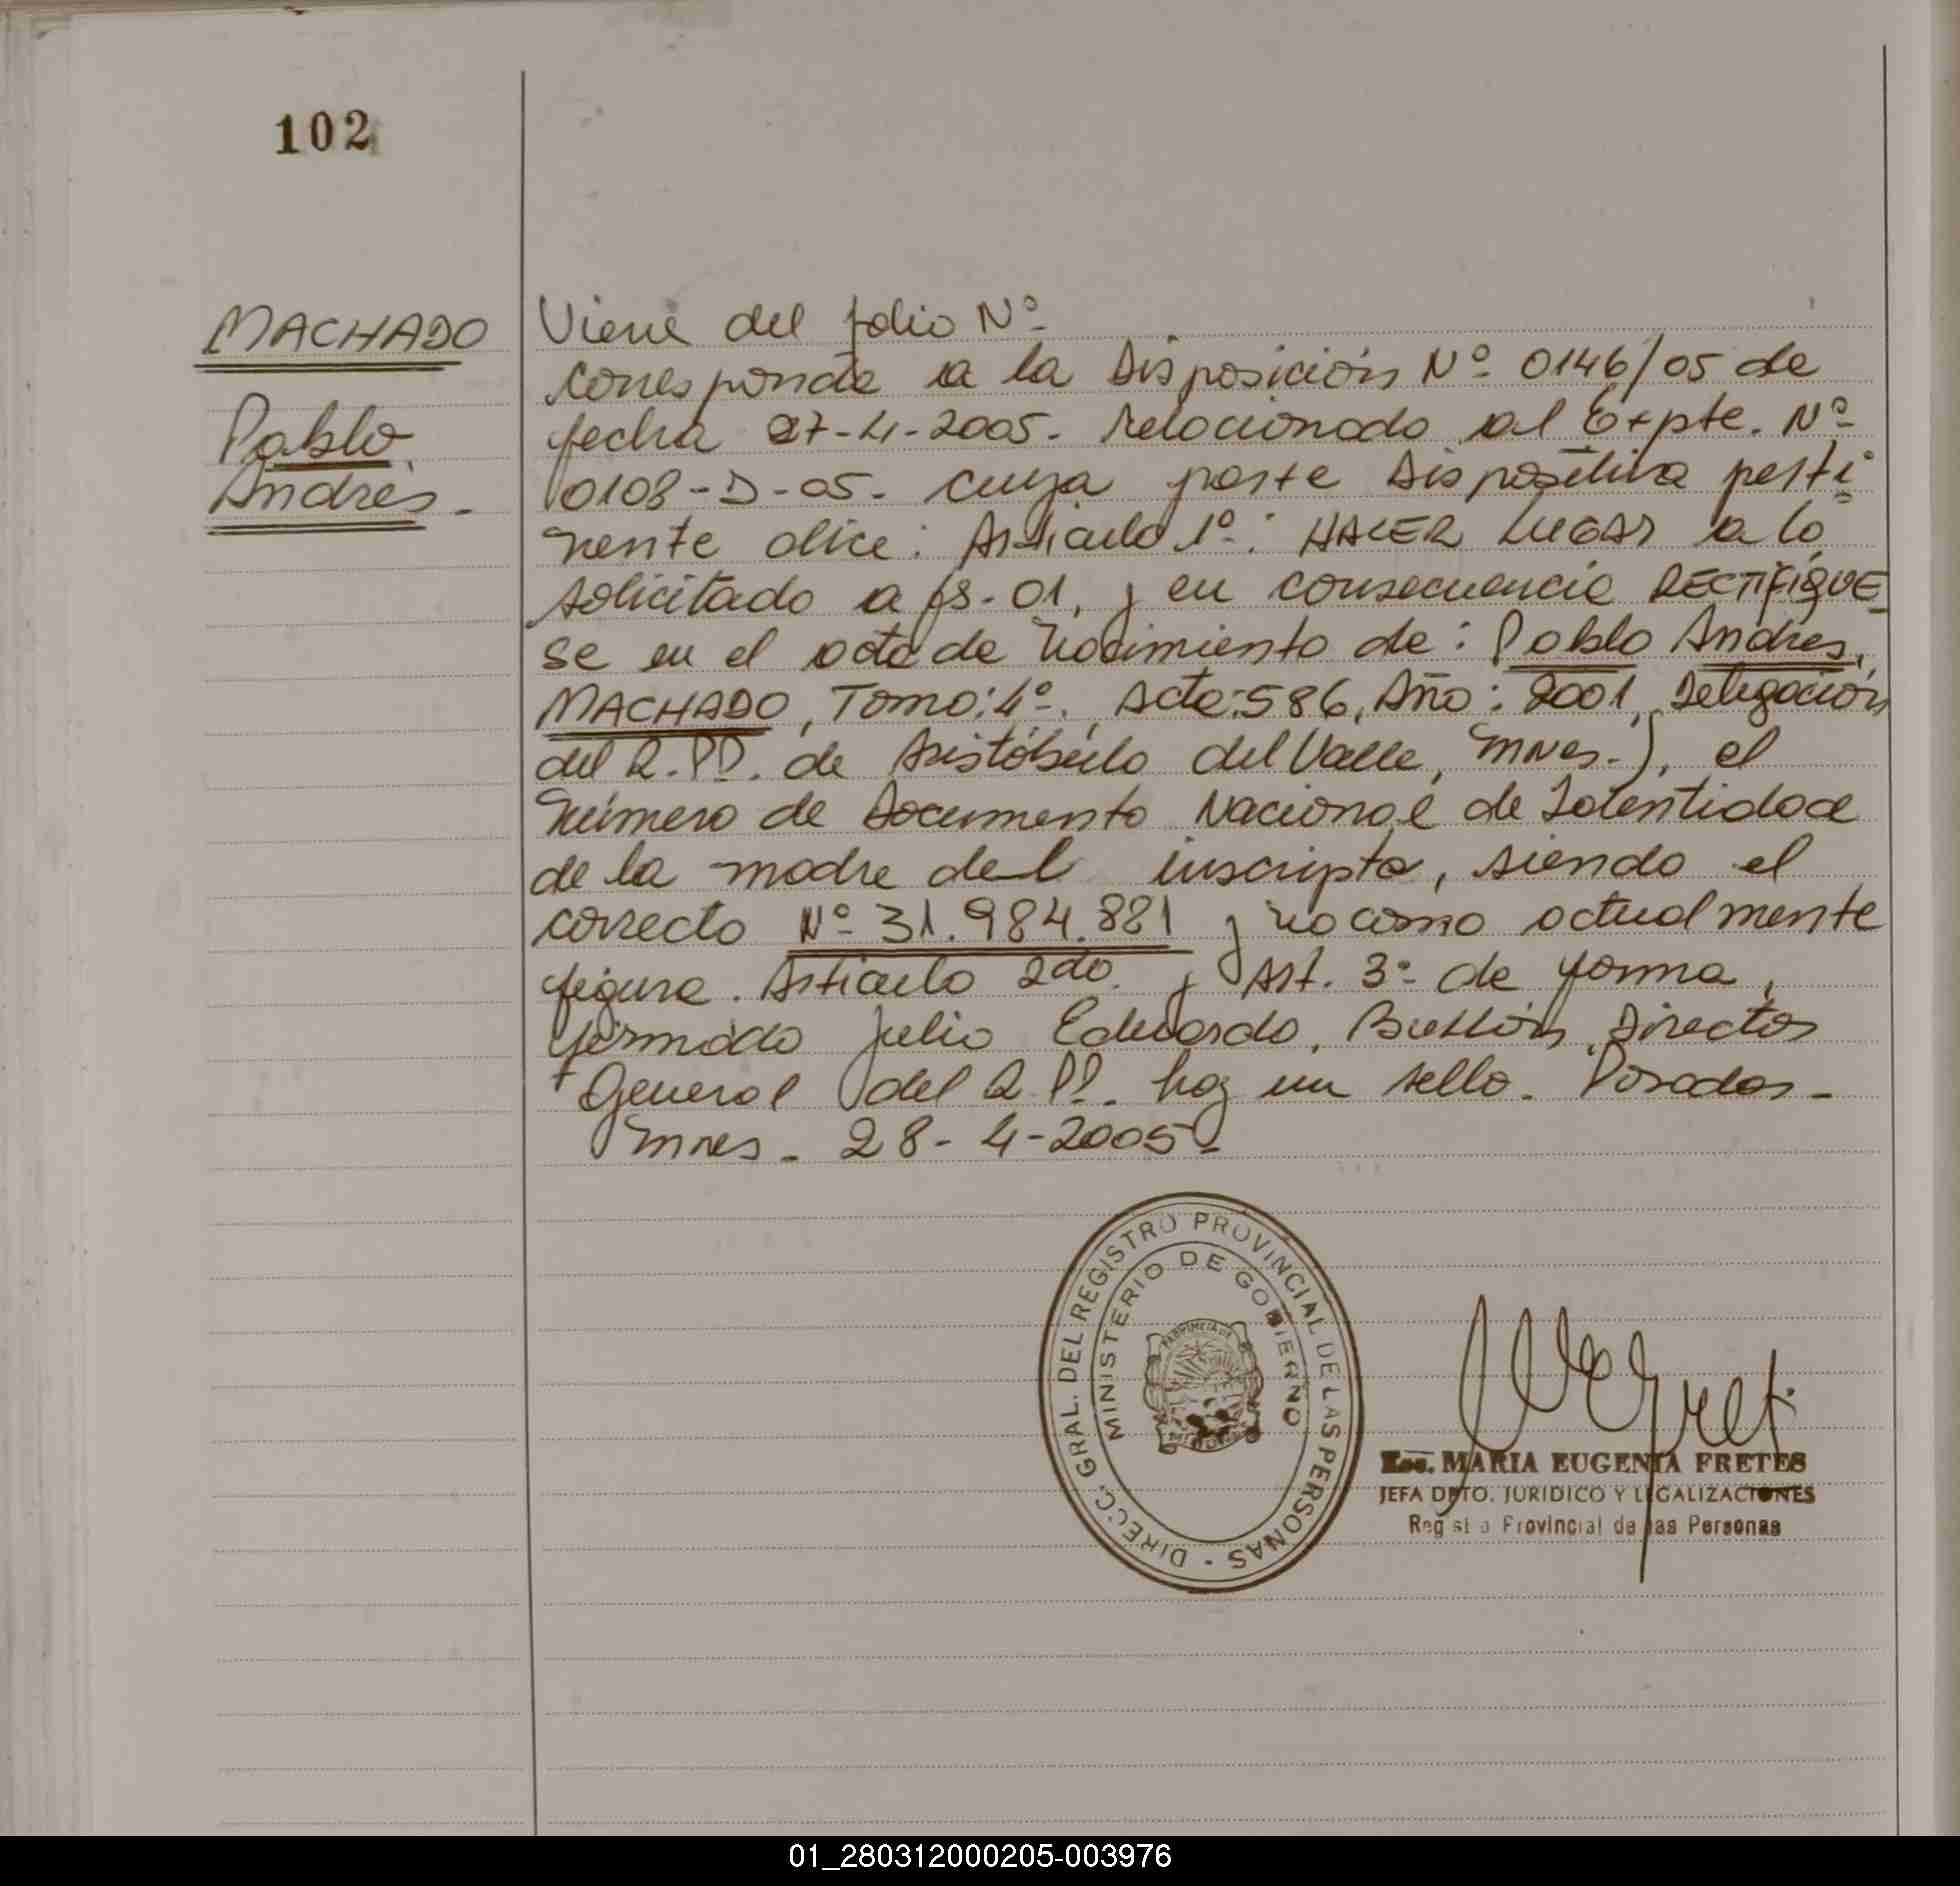 102
MACHADO
Pablo
Andrés.-
Viene del folio Nº
corresponde a la Disposición Nº 0146/05 de
fecha 27-4-2005. relacionado al Expte. Nº
0108-D-05. cuya parte dispositiva perti
nente dice: Artículo 1º: HACER LUGAR a lo
solicitado a fs. 01, y en consecuencia RECTIFIQUE
se en el acta de nacimiento de: Pablo Andrés,
MACHADO, Tomo: 4º. Acta: 586, Año: 2001, Delegación
del R.PP. de Aristóbulo del Valle, Mnes.-), el
número de Documento Nacional de Identidad
de la madre del inscripto, siendo el
correcto Nº 31.984.881 y no como actualmente
figura. Artículo 2do. y Art. 3º de forma,
firmado Julio Eduardo, Director
General del R.PP. hay un sello. Posadas-
Mnes. 28-4-2005-
DIRECC. GRAL. DEL REGISTRO PROVINCIAL DE LAS PERSONAS -
MINISTERIO DE GOBIERNO
PROVINCIA DE
MISIONES
Esc. MARIA EUGENIA FRETES
JEFA DPTO. JURIDICO Y LEGALIZACIONES
Registro Provincial de las Personas
01_280312000205-003976